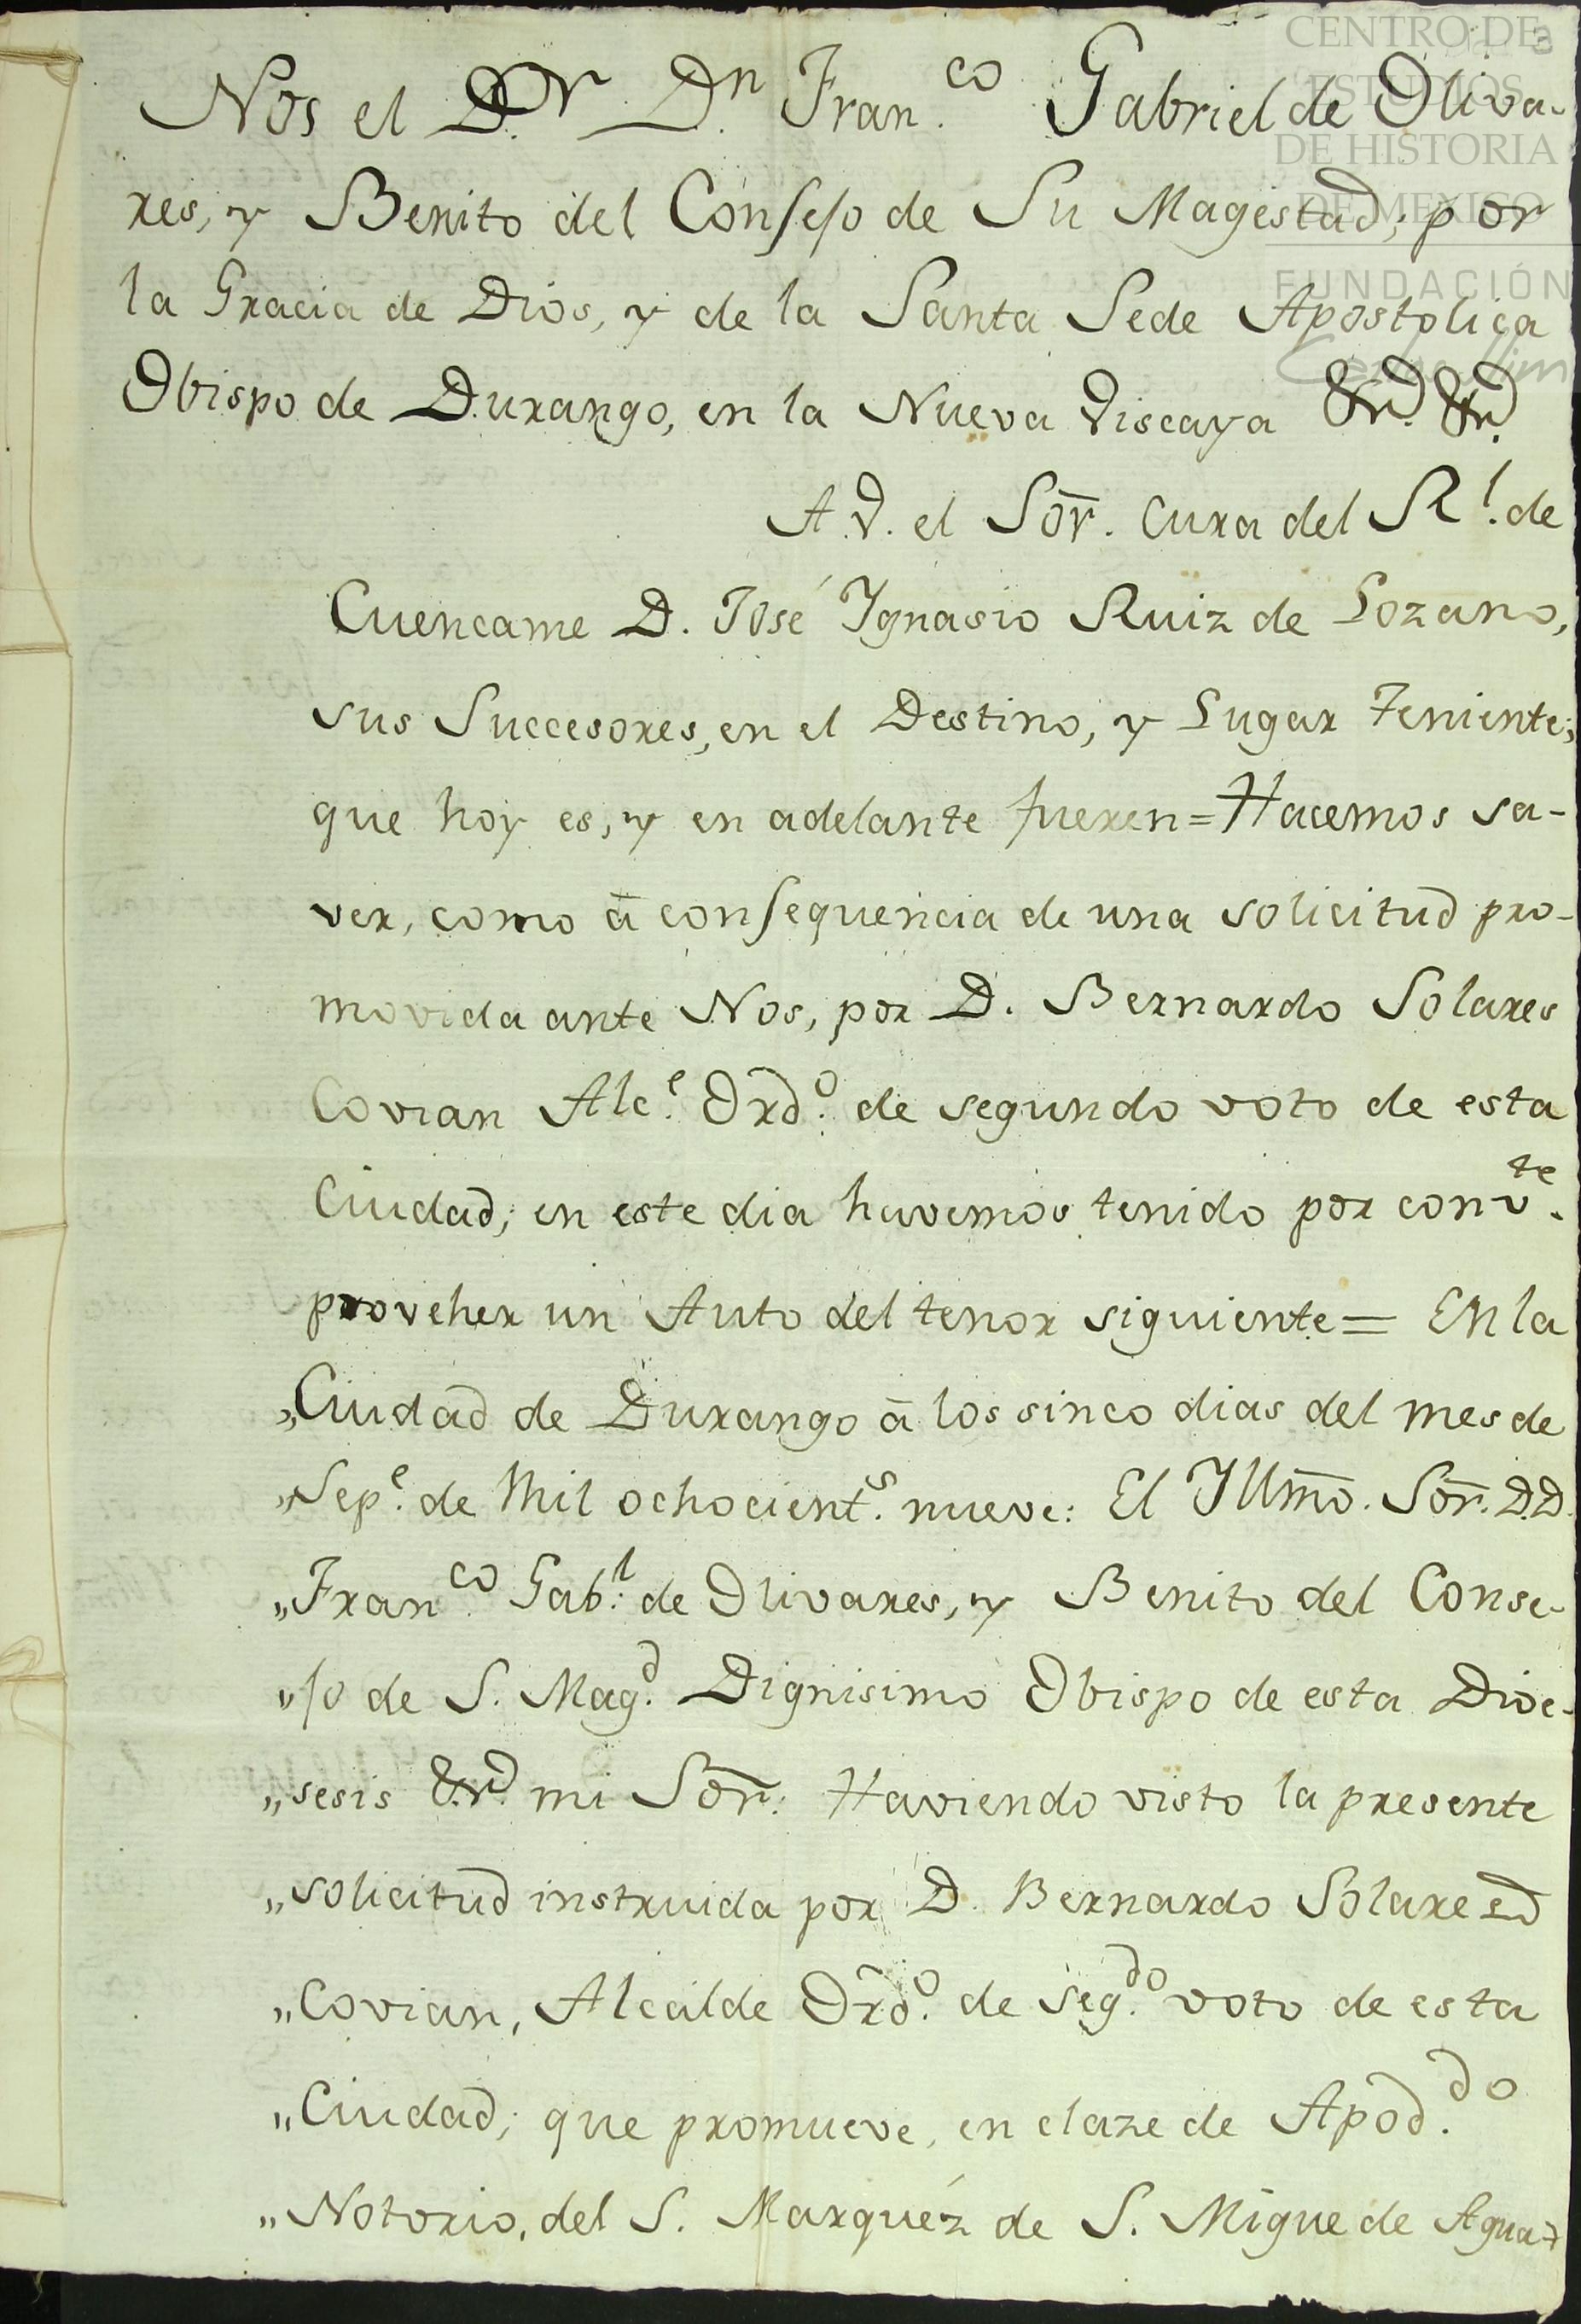 CENTRO DE
ESTUDIOS
DE HISTORIA
DE MEXICO
FUNDACIÓN
Carlos Slim
3
Nos el D.r D.n Fran.co Gabriel de Oliva-
res, y Benito del Consejo de Su Magestad, por
la Gracia de Dios, y de la Santa Sede Apostolica
Obispo de Durango, en la Nueva Viscaya &.a &.a
A V. el Sōr. Cura del R.l de
Cuencame D. José Ygnasio Ruiz de Lozano,
sus Succesores, en el Destino, y Lugar Teniente;
que hoy es, y en adelante fueren = Hacemos sa-
ver, como ā consequencia de una solicitud pro-
movida ante Nos, por D. Bernardo Solares
Covian Alc.e Ord.o de segundo voto de esta
Ciudad, en este dia havemos tenido por conv.te
proveher un Auto del tenor siguiente = EN la
„Ciudad de Durango ā los sinco dias del mes de
„Sep.e de Mil ochocient.s nueve: El Yllmō. Sōr. D.D.
„Fran.co Gab.l de Olivares, y Benito del Conse-
„jo de S. Mag.d Dignisimo Obispo de esta Dioc-
„sesis &.a mi Sōr: Haviendo visto la presente
„solicitud instruida por D. Bernardo Solares
„Covian, Alcalde Ord.o de seg.do voto de esta
„Ciudad; que promueve, en claze de Apod.do
„Notorio, del S. Marquéz de S. Migue de Agua-